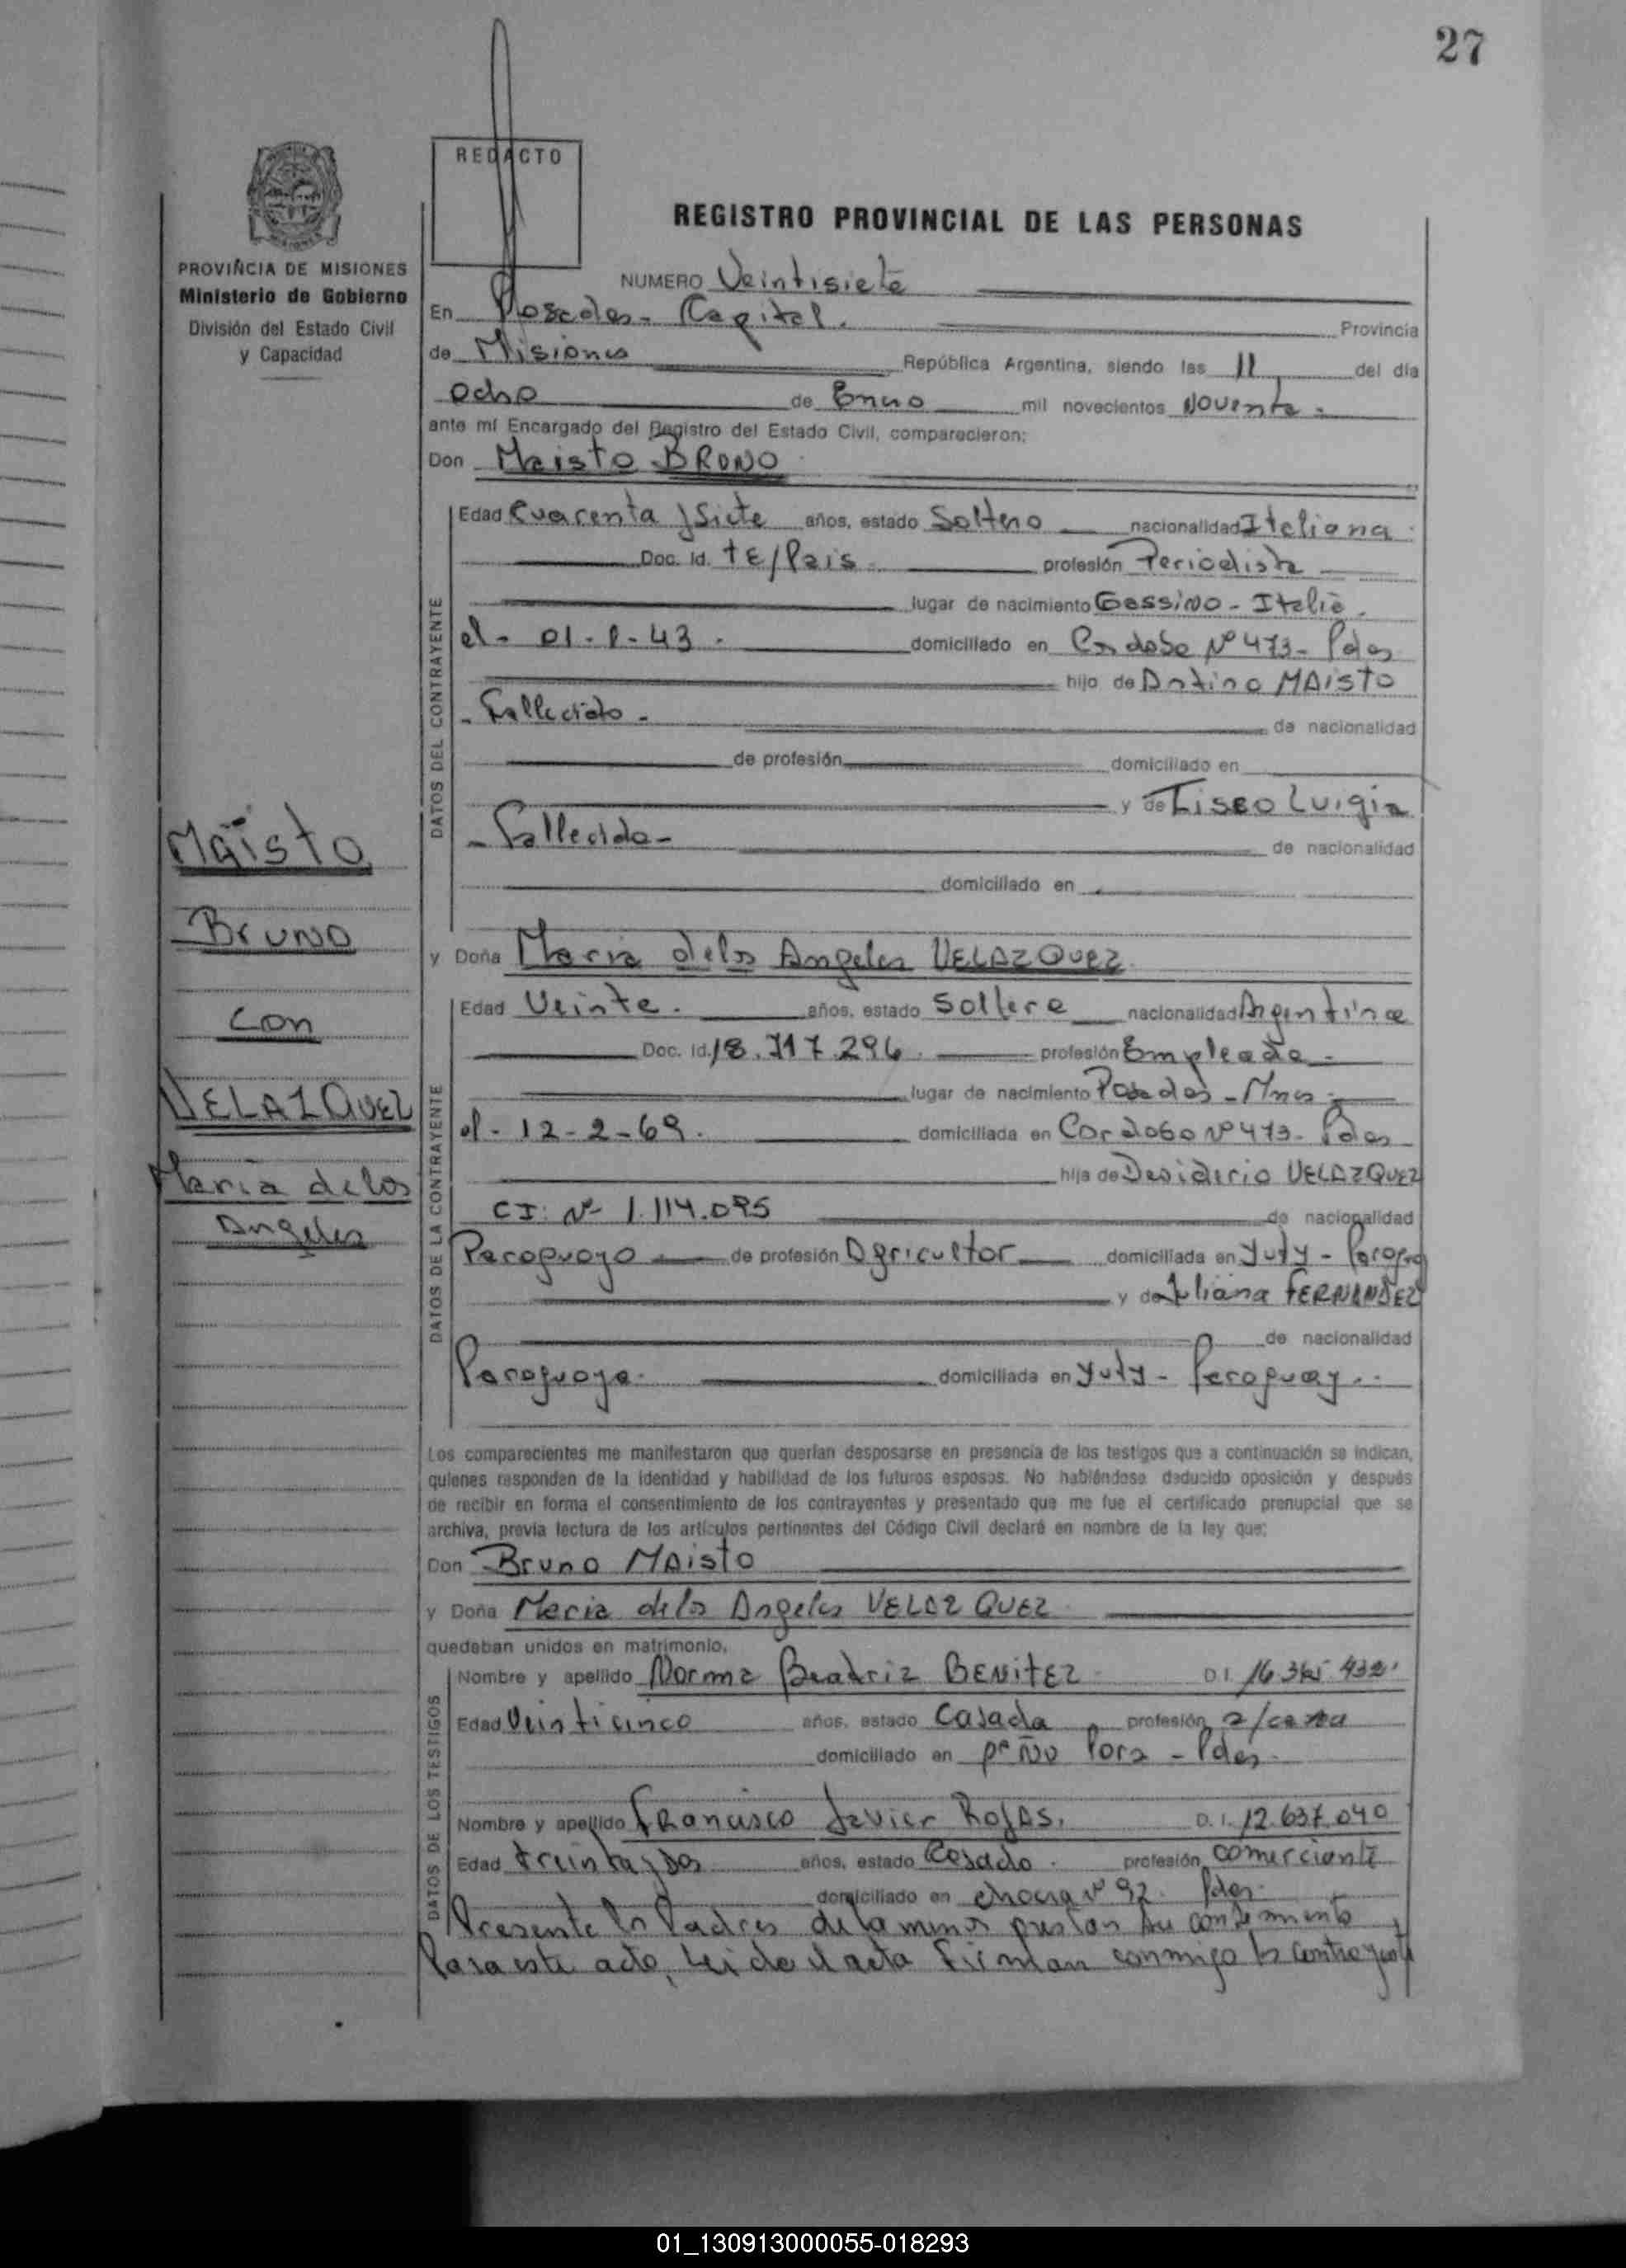 27
REDACTO
REGISTRO PROVINCIAL DE LAS PERSONAS
PROVINCIA DE MISIONES
Ministerio de Gobierno
División del Estado Civil
y Capacidad
NUMERO Veintisiete
En Posadas - Capital. Provincia
de Misiones República Argentina, siendo las 11 del día
ocho de Enero mil novecientos Noventa.
ante mí Encargado del Registro del Estado Civil, comparecieron:
Don Maisto BRUNO
DATOS DEL CONTRAYENTE
Edad Cuarenta y Siete años, estado Soltero nacionalidad Italiana
Doc. Id. TE/Pais profesión Periodista
lugar de nacimiento Gessino - Italia.
el - 01-1-43. domiciliado en Cordoba Nº 473 - Pdas
hijo de MAISTO
- Fallecido - de nacionalidad
de profesión domiciliado en
y de Tiseo Luigia
- Fallecida - de nacionalidad
domiciliado en
Maisto
Bruno
con
VELAZQUEZ
Maria de los
Angeles
y Doña Maria de los Angeles VELAZQUEZ
DATOS DE LA CONTRAYENTE
Edad Veinte. años, estado Soltera nacionalidad Argentina
Doc. Id. 18.717.296. profesión Empleada -
lugar de nacimiento Posadas - Mnes
el - 12-2-69. domiciliada en Cordoba Nº 473 - Pdas
hija de Desiderio VELAZQUEZ
CI: Nº 1.114.095 de nacionalidad
Paraguayo de profesión Agricultor domiciliada en Yuty -
y de Juliana FERNANDEZ
de nacionalidad
Paraguaya. domiciliada en Yuty - Paraguay..
Los comparecientes me manifestaron que querían desposarse en presencia de los testigos que a continuación se indican,
quienes responden de la identidad y habilidad de los futuros esposos. No habiéndose deducido oposición y después
de recibir en forma el consentimiento de los contrayentes y presentado que me fue el certificado prenupcial que se
archiva, previa lectura de los artículos pertinentes del Código Civil declaré en nombre de la ley que:
Don Bruno MAISTO
y Doña Maria de los Angeles VELAZQUEZ
quedaban unidos en matrimonio.
DATOS DE LOS TESTIGOS
Nombre y apellido Norma Beatriz BENITEZ D I.
Edad Veinticinco años, estado Casada profesión
domiciliado en Pora - Pdas
Nombre y apellido Francisco Javier ROJAS. D. I. 12.637.040
Edad treinta y dos años, estado Casado. profesión comerciante
domiciliado en Nº 92. Pdas.
Presente los Padres de la menor prestan su
Para este acto, leida el acta firman conmigo los
01_130913000055-018293